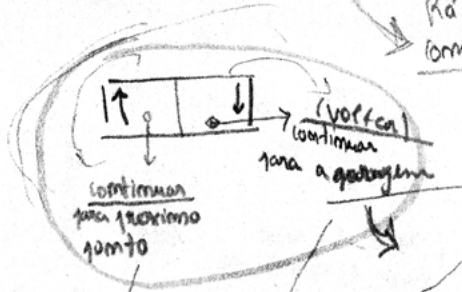 Rá
com
(voltar)
continuar
para a garagem
continuar
para proximo
ponto